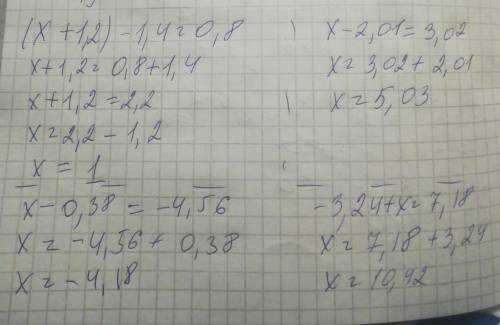 (x + 1,2) - 1,4 = 0,8
x + 1,2 = 0,8 + 1,4
x + 1,2 = 2,2
x = 2,2 - 1,2
x = 1
x - 2,01 = 3,02
x = 3,02 + 2,01
x = 5,03
x - 0,38 = -4,56
x = -4,56 + 0,38
x = -4,18
-3,24 + x = 7,18
x = 7,18 + 3,24
x = 10,42